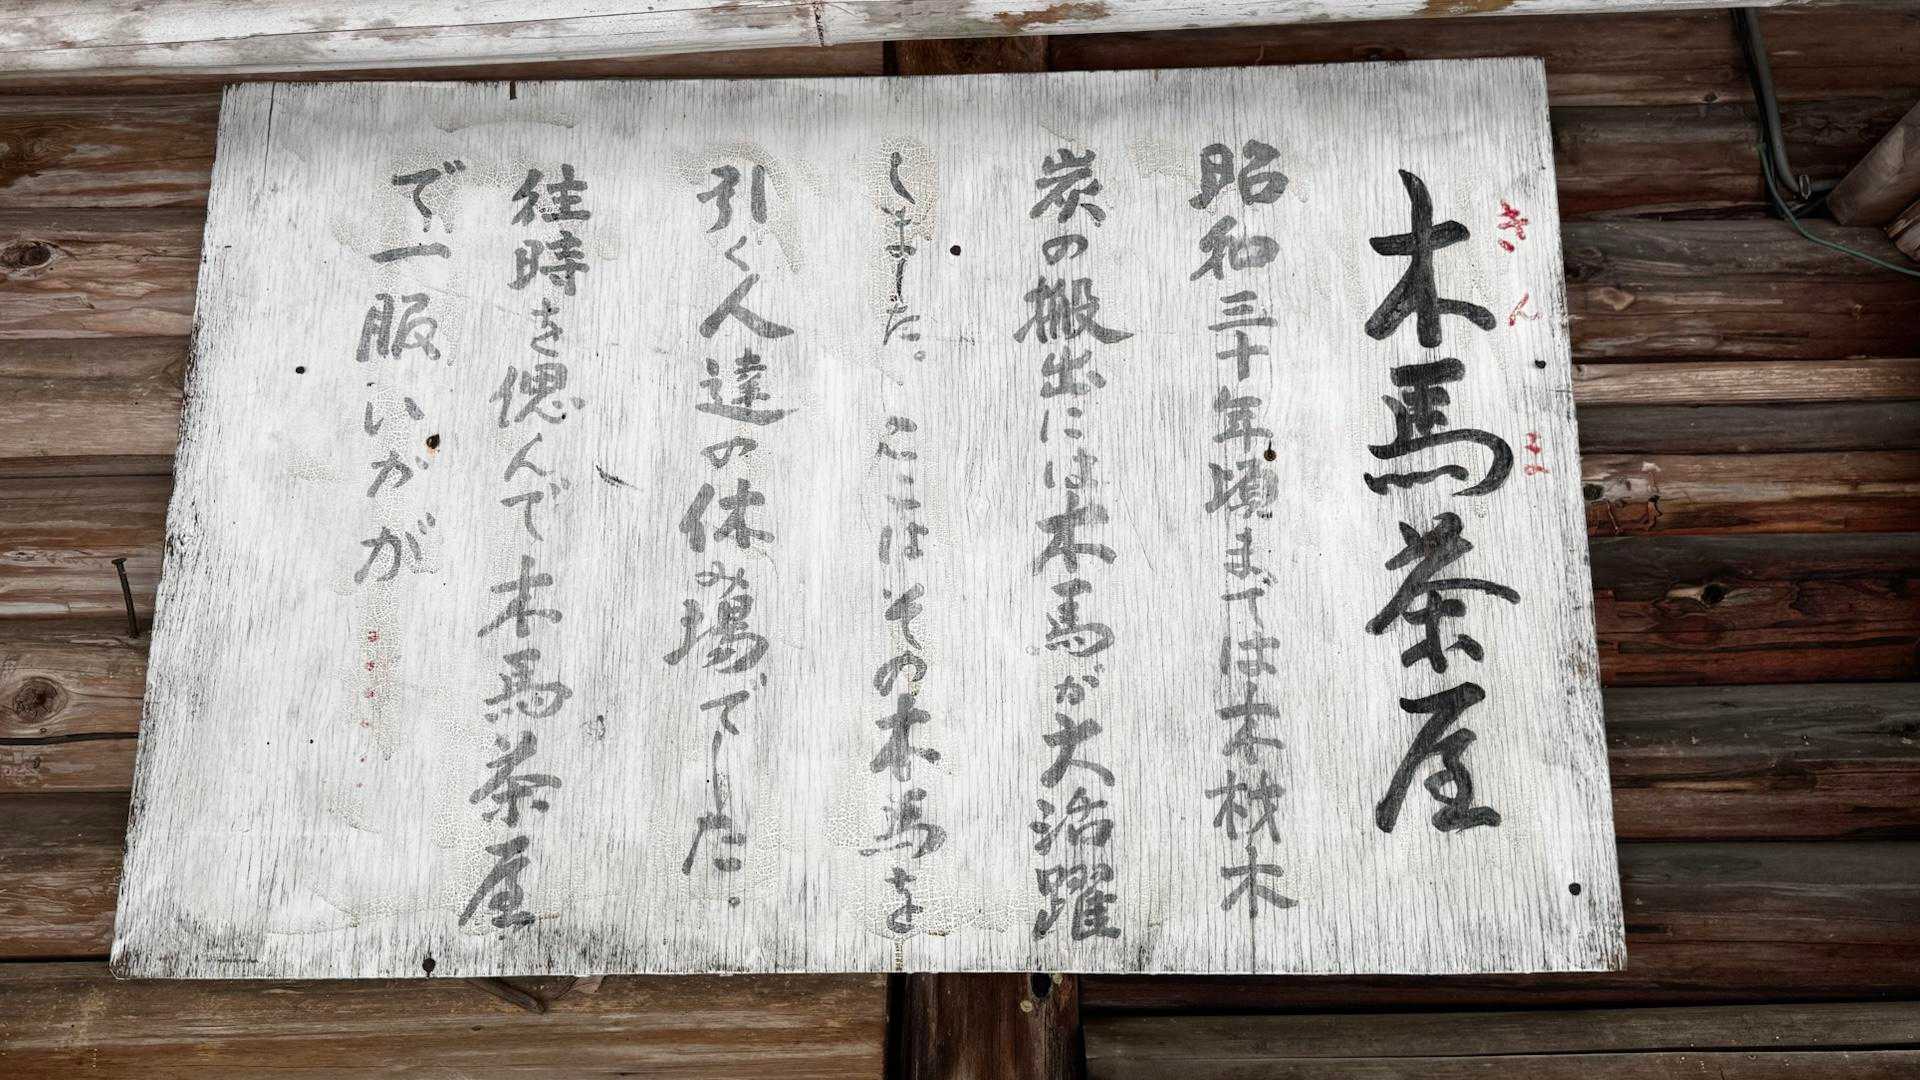 木馬茶屋
きんま
昭和三十年頃までは木材木
炭の搬出には木馬が大活躍
しました。ここはその木馬を
引く人達の休み場でした。
往時を偲んで木馬茶屋
で一服いかが